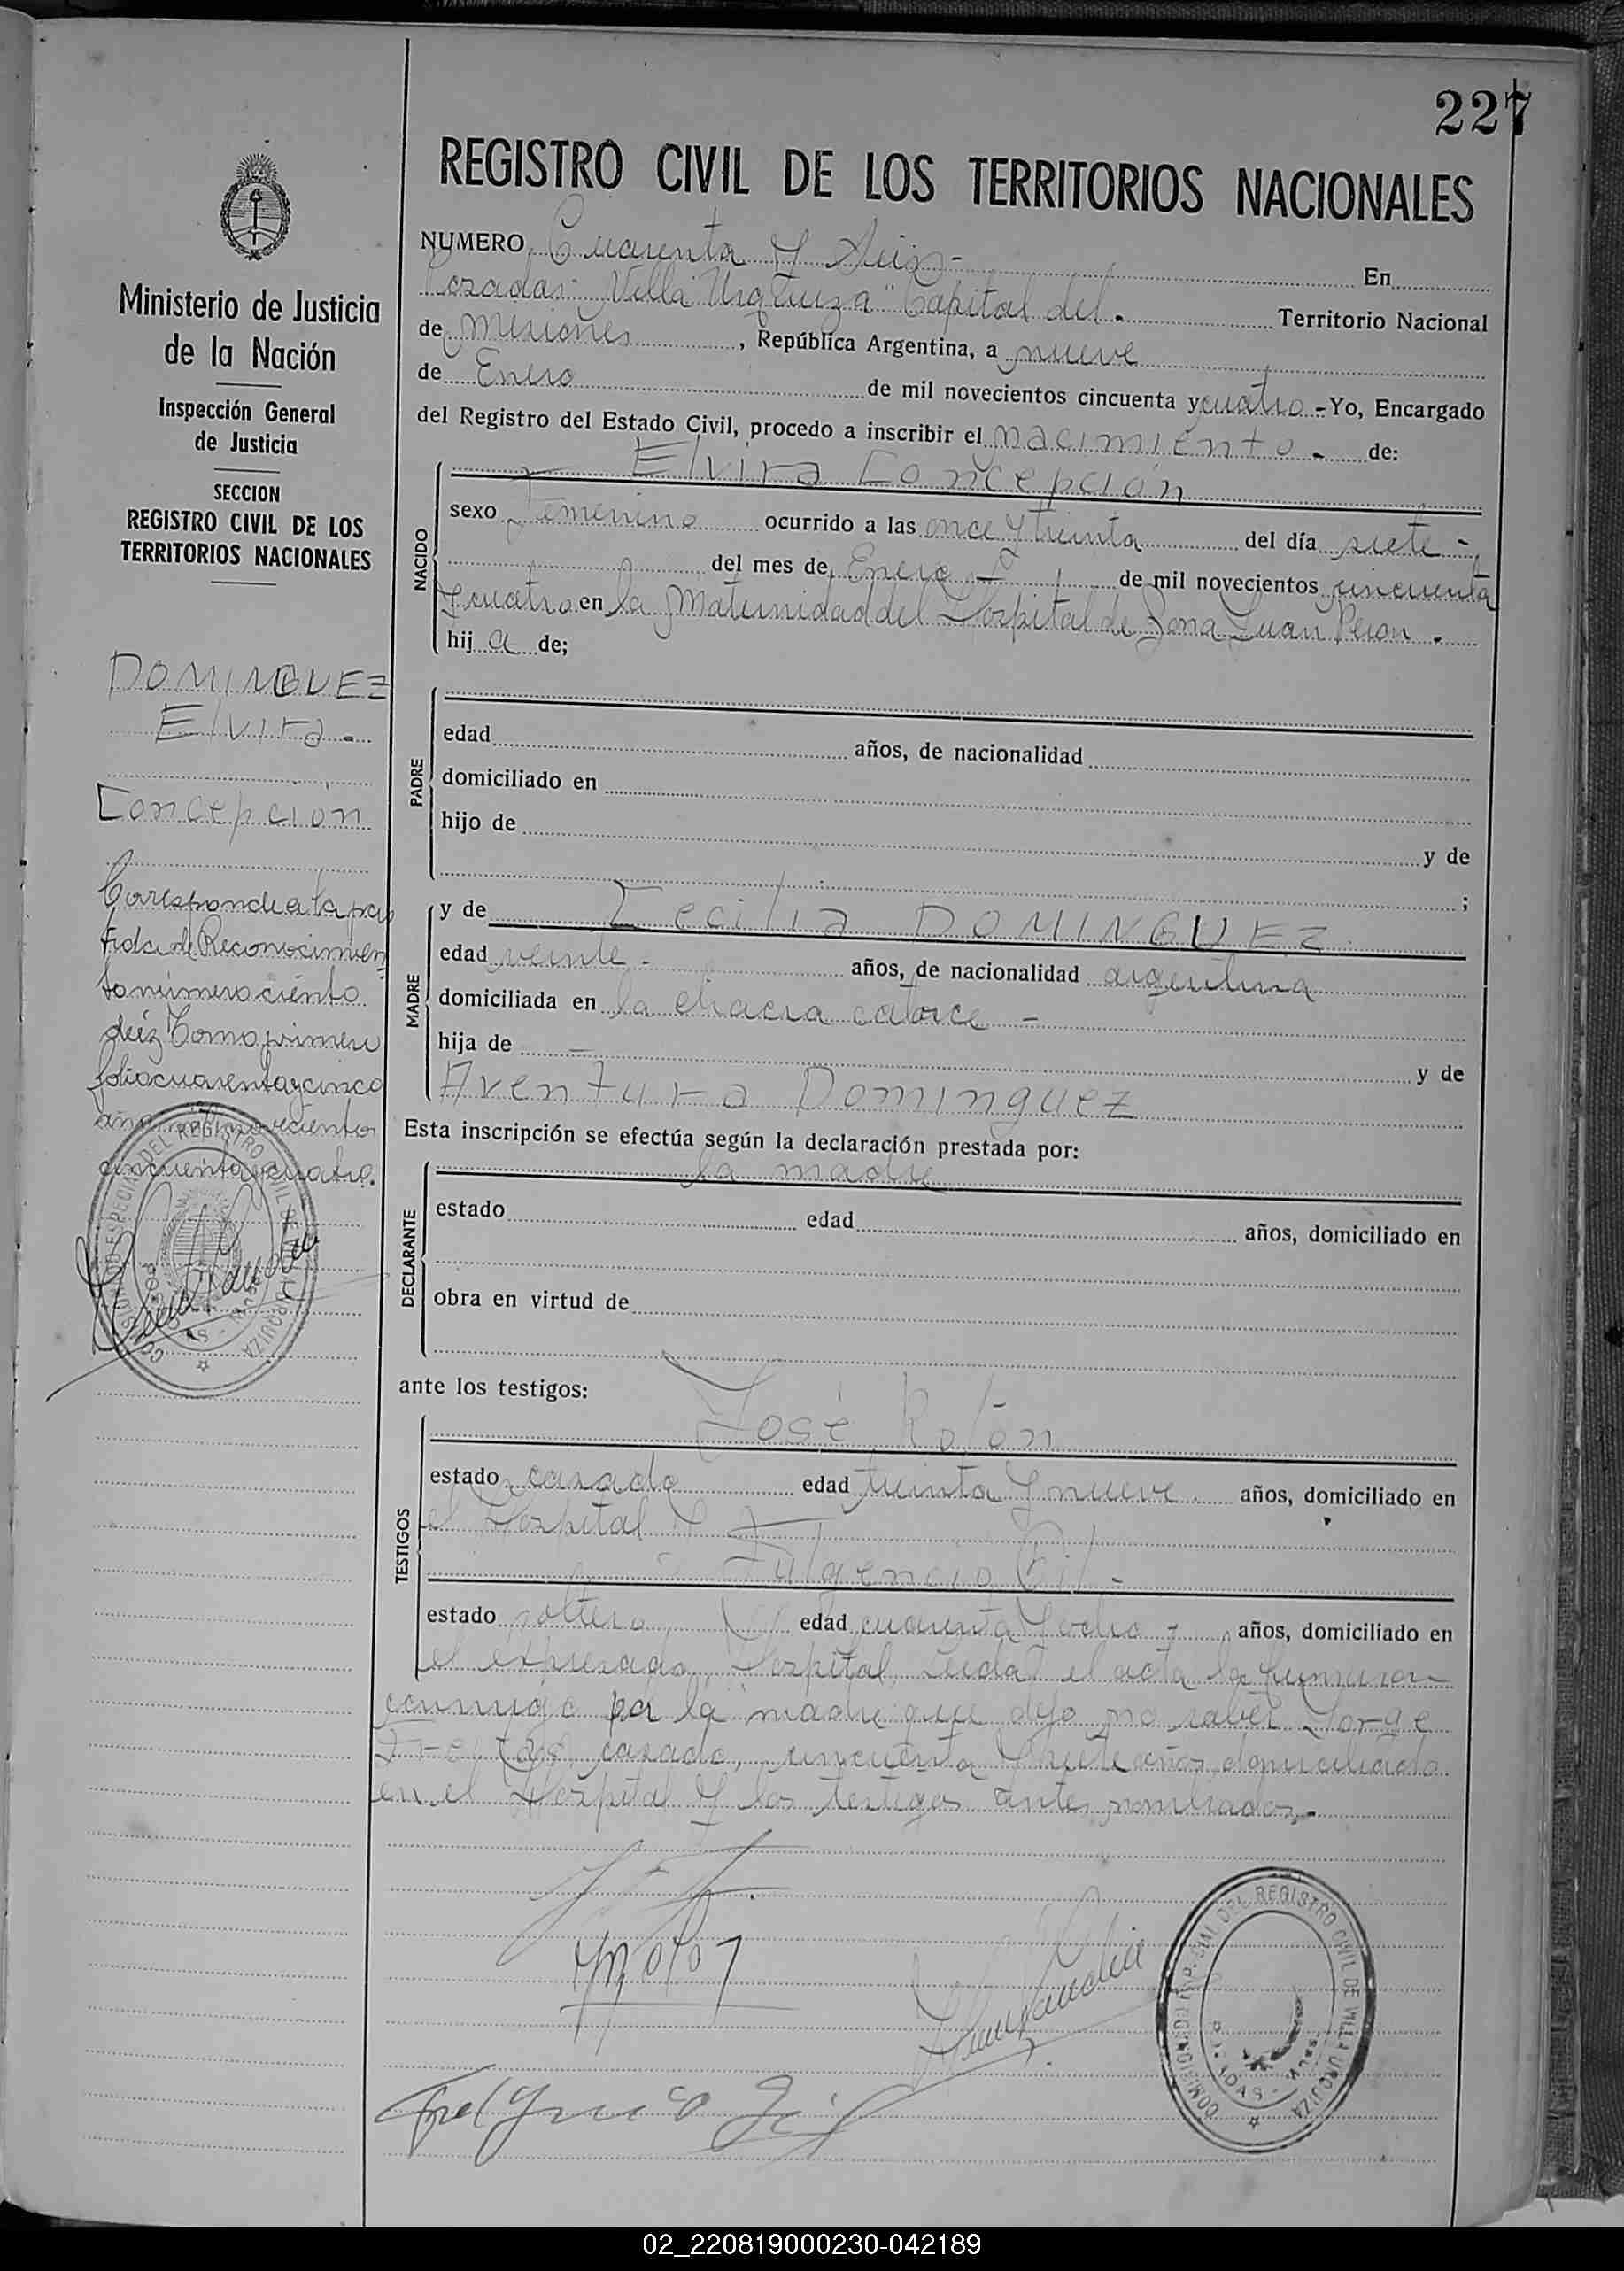 227
REGISTRO CIVIL DE LOS TERRITORIOS NACIONALES
Ministerio de Justicia
de la Nación
Inspección General
de Justicia
SECCION
REGISTRO CIVIL DE LOS
TERRITORIOS NACIONALES
DOMINGUEZ
Elvira.
Concepción
Corresponde a la par
tida de Reconocimien
to número ciento
diéz Tomo primero
folio cuarenta y cinco
año mil novecientos
cincuenta y cuatro.
NUMERO Cuarenta y Seis - En
Posadas "Villa Urquiza" Capital del. Territorio Nacional
de Misiones, República Argentina, a nueve
de Enero de mil novecientos cincuenta y cuatro - Yo, Encargado
del Registro del Estado Civil, procedo a inscribir el nacimiento. de:
NACIDO
Elvira Concepción
sexo femenino ocurrido a las once y treinta del día siete -
del mes de Enero - de mil novecientos cincuenta
y cuatro en la Maternidad del Hospital de Zona Juan Peron.
hij a de;
PADRE
edad años, de nacionalidad
domiciliado en
hijo de y de
;
MADRE
y de Cecilia DOMINGUEZ
edad veinte - años, de nacionalidad argentina
domiciliada en la chacra catorce -
hija de - y de
Aventura Dominguez
Esta inscripción se efectúa según la declaración prestada por:
DECLARANTE
la madre
estado edad años, domiciliado en
obra en virtud de
ante los testigos:
TESTIGOS
José Rolón
estado casado edad treinta y nueve años, domiciliado en
el Hospital y
Fulgencio Gil -
estado soltero edad cuarenta y ocho - años, domiciliado en
el expresado Hospital Leida el acta la firmaron
conmigo por la madre que dijo no saber Jorge
casado, cincuenta y siete años, domiciliado
en el Hospital y los testigos antes nombrados.
Fulgencio Gil
COMISIONADO ESPECIAL DEL REGISTRO CIVIL DE VILLA URQUIZA
POSADAS - Mnes.
02_220819000230-042189